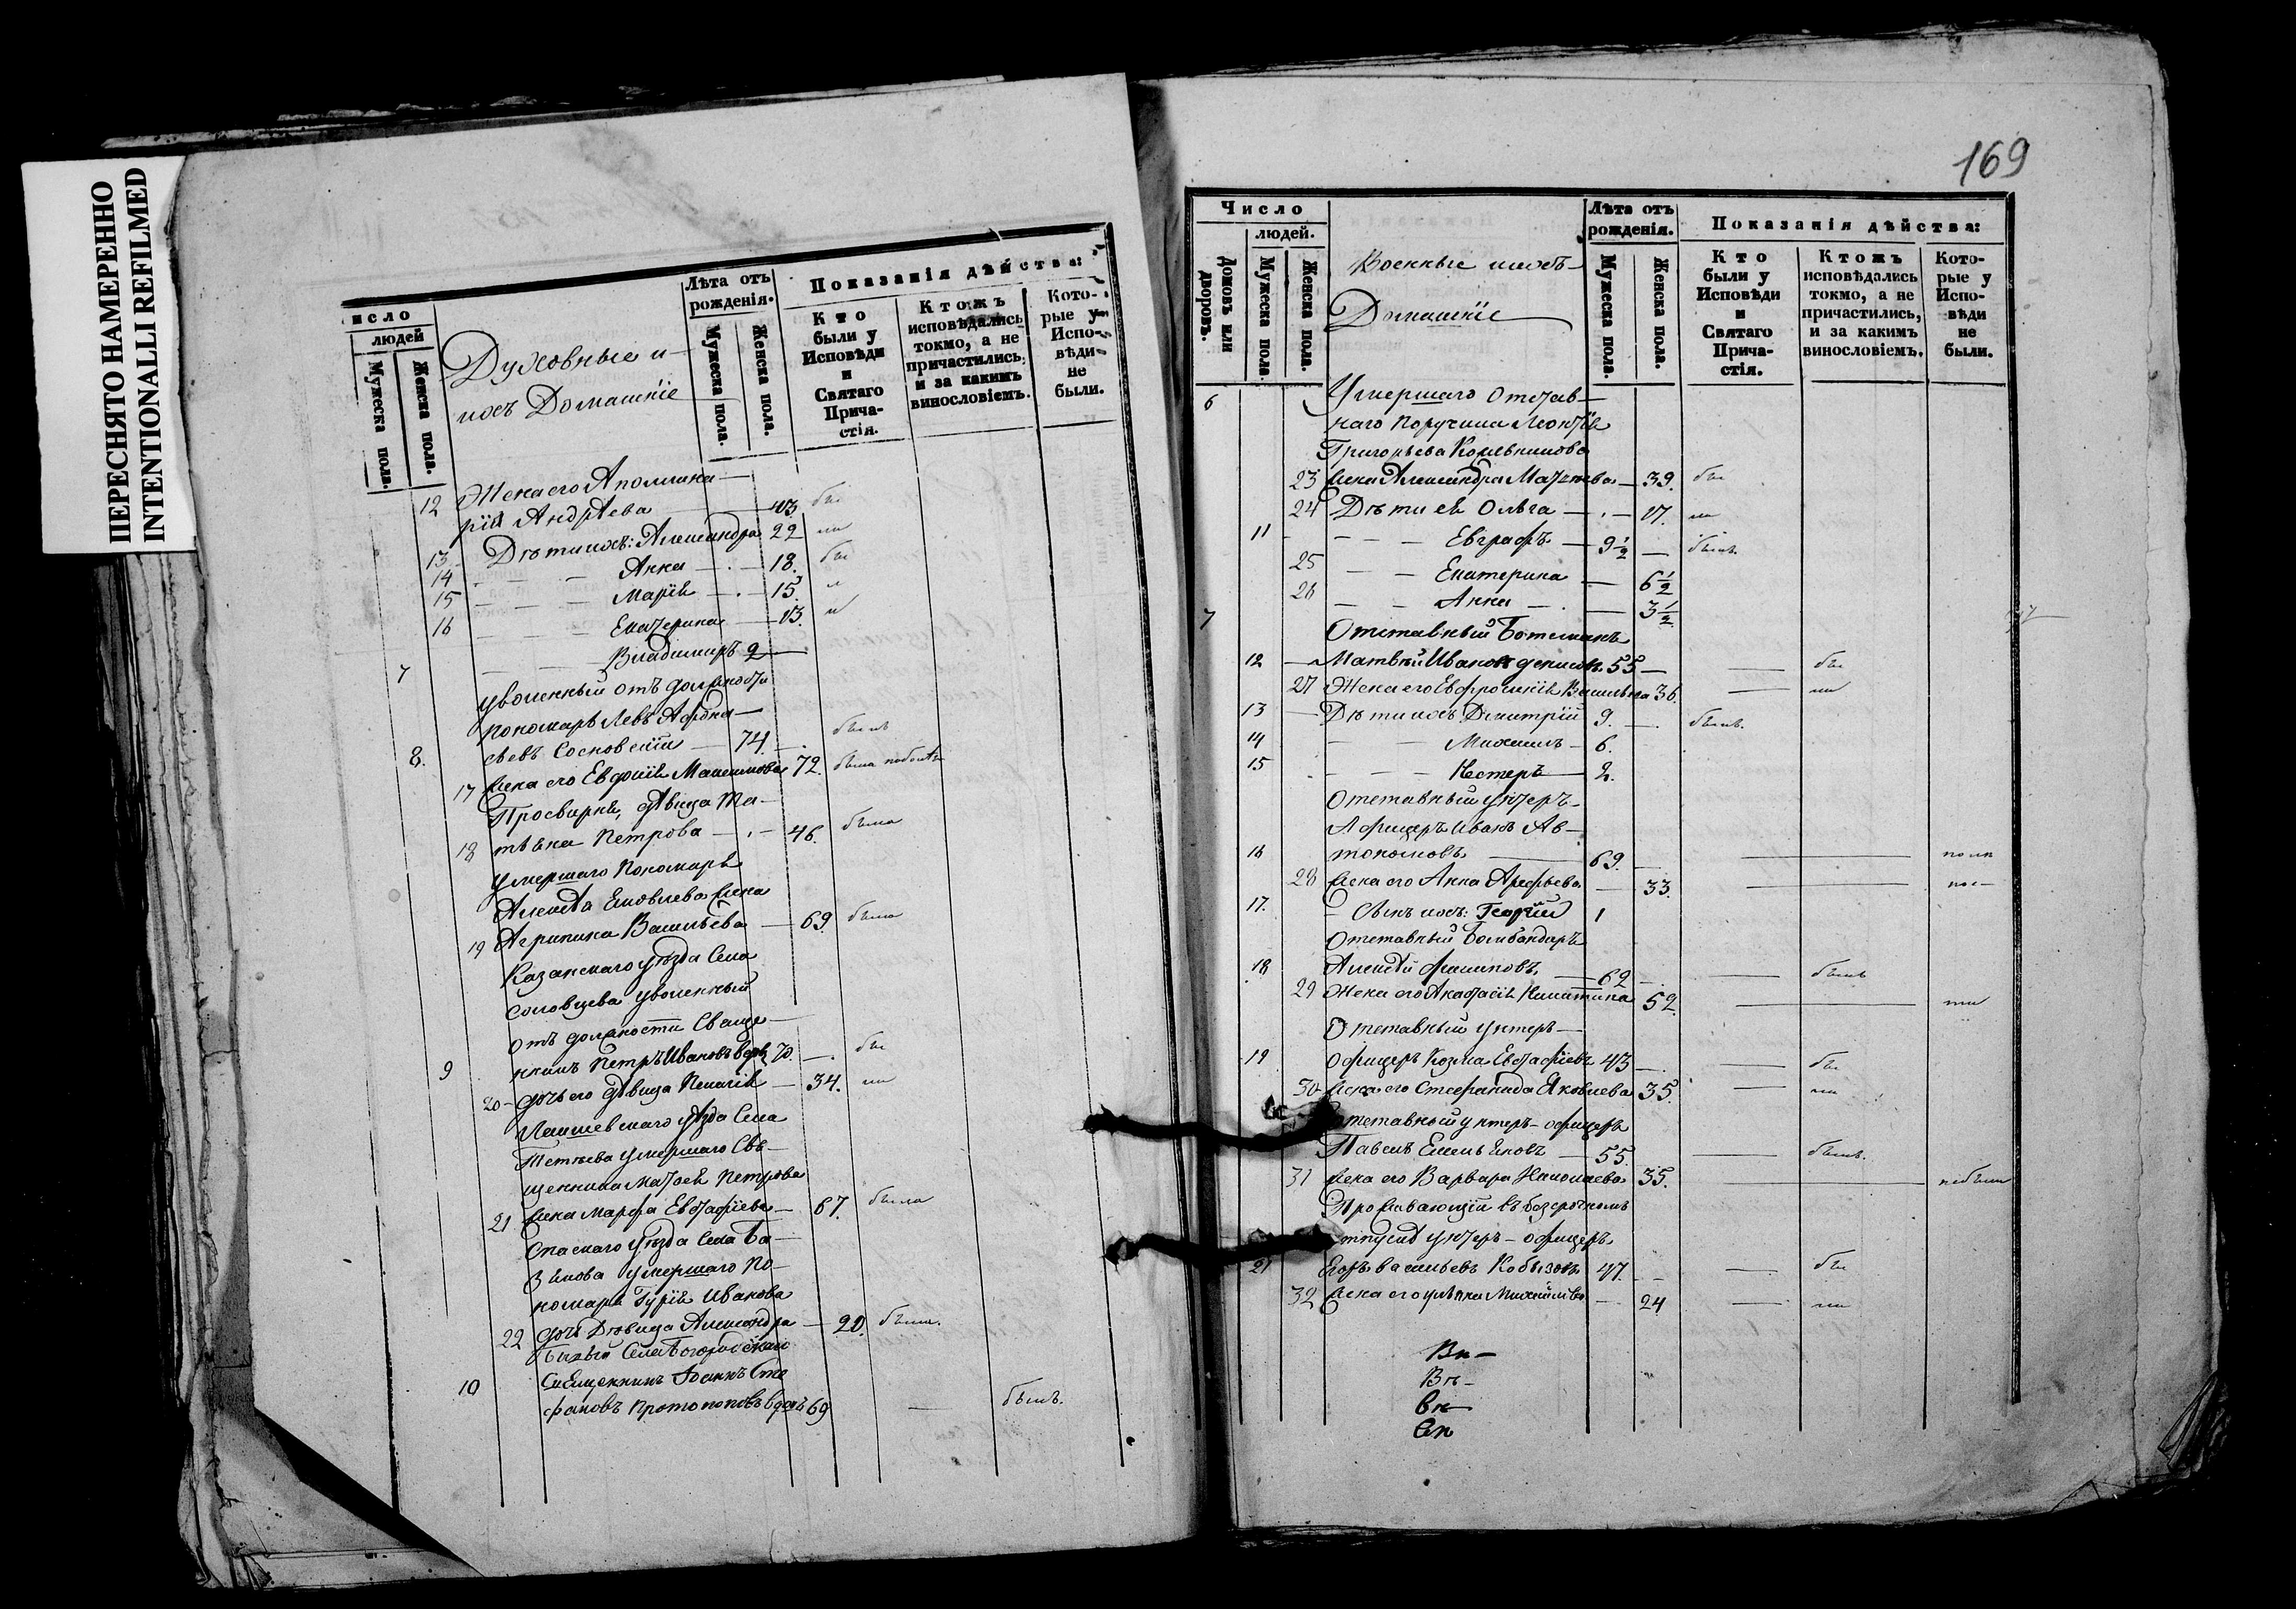 ПЕРЕСНЯТО НАМЕРЕННО
INTENTIONALLI REFILMED
исло
людей
Мужеска пола.
Женска пола.
Духовные и
ихъ Домашніе
Лѣта отъ
рожденія.
Мужеска пола.
Женска пола.
Показанія дѣйства:
Кто
были у
Исповѣди
и
Святаго
Прича-
стія.
Ктожъ
исповѣдались
токмо, а не
причастились,
и за какимъ
винословіемъ.
Кото-
рые у
Испо-
вѣди
не
были.
12 Жена его Аполлина-
рія Андрѣева
13 Дѣти ихъ: Александра 22
14 Анна 18.
15 Марія 15.
16 Екатерина 13.
7 Владимиръ 2
уволенный отъ должности
пономарь Левъ Афона-
8. сьевъ Сосновскій 74. былъ
17 жена его Евдокія Максимова 72. была
Просвирня, дѣвица Та-
18 тьяна Петрова 46. была
умершаго Пономаря
Алексѣя Яковлева жена
19 Агрипина Васильева 69. была
Казанскаго уѣзда Села
уволенный
отъ должности Свяще-
9 нникъ Петръ Ивановъ вдовъ 70.
20 дочь его дѣвица Пелагія 34.
Лаишевскаго уѣзда Села
умершаго Свя-
щенника Матвея Петрова
21 жена Марфа Евстафіева 67. была
Спаскаго уѣзда Села
умершаго По-
номаря Гурія Иванова
22 дочь Дѣвица Александра 20. была.
Села Богородскаго
10 Священникъ Іоаннъ Сте
фановъ Протопоповъ вдовъ 69 былъ.
169
Число
людей.
Домовъ или
дворовъ.
Мужеска пола.
Женска пола.
Военные ихъ
Домашніе
Лѣта отъ
рожденія.
Мужеска пола.
Женска пола.
Показанія дѣйства:
Кто
были у
Исповѣди
и
Святаго
Прича-
стія.
Ктожъ
исповѣдались
токмо, а не
причастились,
и за какимъ
винословіемъ.
Кото-
рые у
Испо-
вѣди
не
были.
6 Умершаго Отстав-
наго Поручика Леонтія
Григорьева
23 жена Александра Матвеева 39.
24 Дѣти ея Ольга 17.
11 Евграфъ 9 1/2 былъ.
25 Екатерина 6 1/2
26 Анна 3 1/2
7 Отставный Ботсманъ
12 Матвѣй Ивановъ 55
27 Жена его Евфросинія Васильева 36.
13 Дѣти ихъ Дмитрій 9. былъ.
14 Михаилъ 6.
15 Нестеръ 2.
Отставный унтеръ-
Афицеръ Иванъ Ав-
16 тономовъ 69.
28 жена его Анна Арефьева 33.
17. Сынъ ихъ: Георгій 1
Отставный Бомбандиръ
18 Алексѣй Филиповъ 62 былъ
29 Жена его Анастасія Никитина 52.
Отставный унтеръ-
19 офицеръ Козма Евстафіевъ 43
30 жена его Стефанида Яковлева 35.
Отставной унтеръ-офицеръ
Павелъ Емельяновъ 55. былъ.
31 жена его Варвара Николаева 35.
Проживающій въ безсрочномъ
отпускѣ унтеръ-офицеръ
21 Егоръ Васильевъ Кобызовъ 47.
32 жена его Ульяна Михайлова 24
Вн-